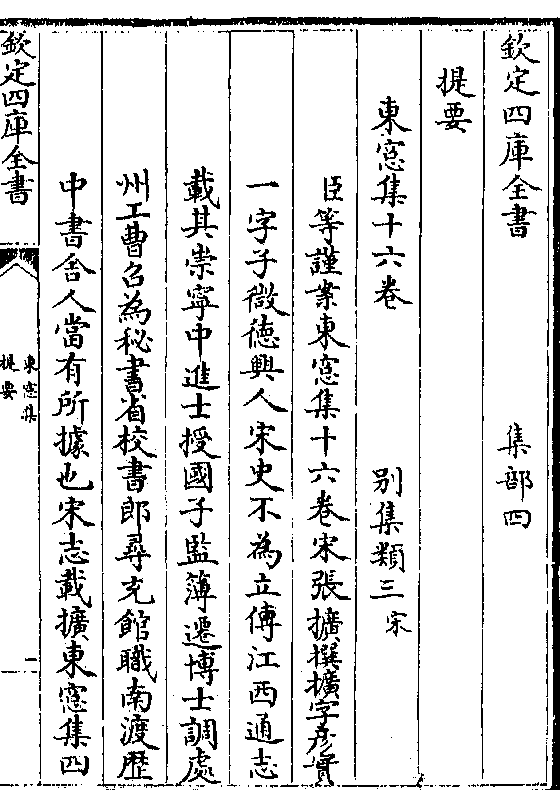 欽定四庫全書　集部四
提要
東窓集十六巻　别集類三宋
臣等謹案東窓集十六巻宋張擴撰擴字彦實
一字子微徳興人宋史不為立傳江西通志
載其崇寧中進士授國子監簿遷博士調處
州工曹召為秘書省校書郎尋充館職南渡歴
中書舍人當有所據也宋志載擴東窓集四
欽定四庫全書
東窓集
提要
一